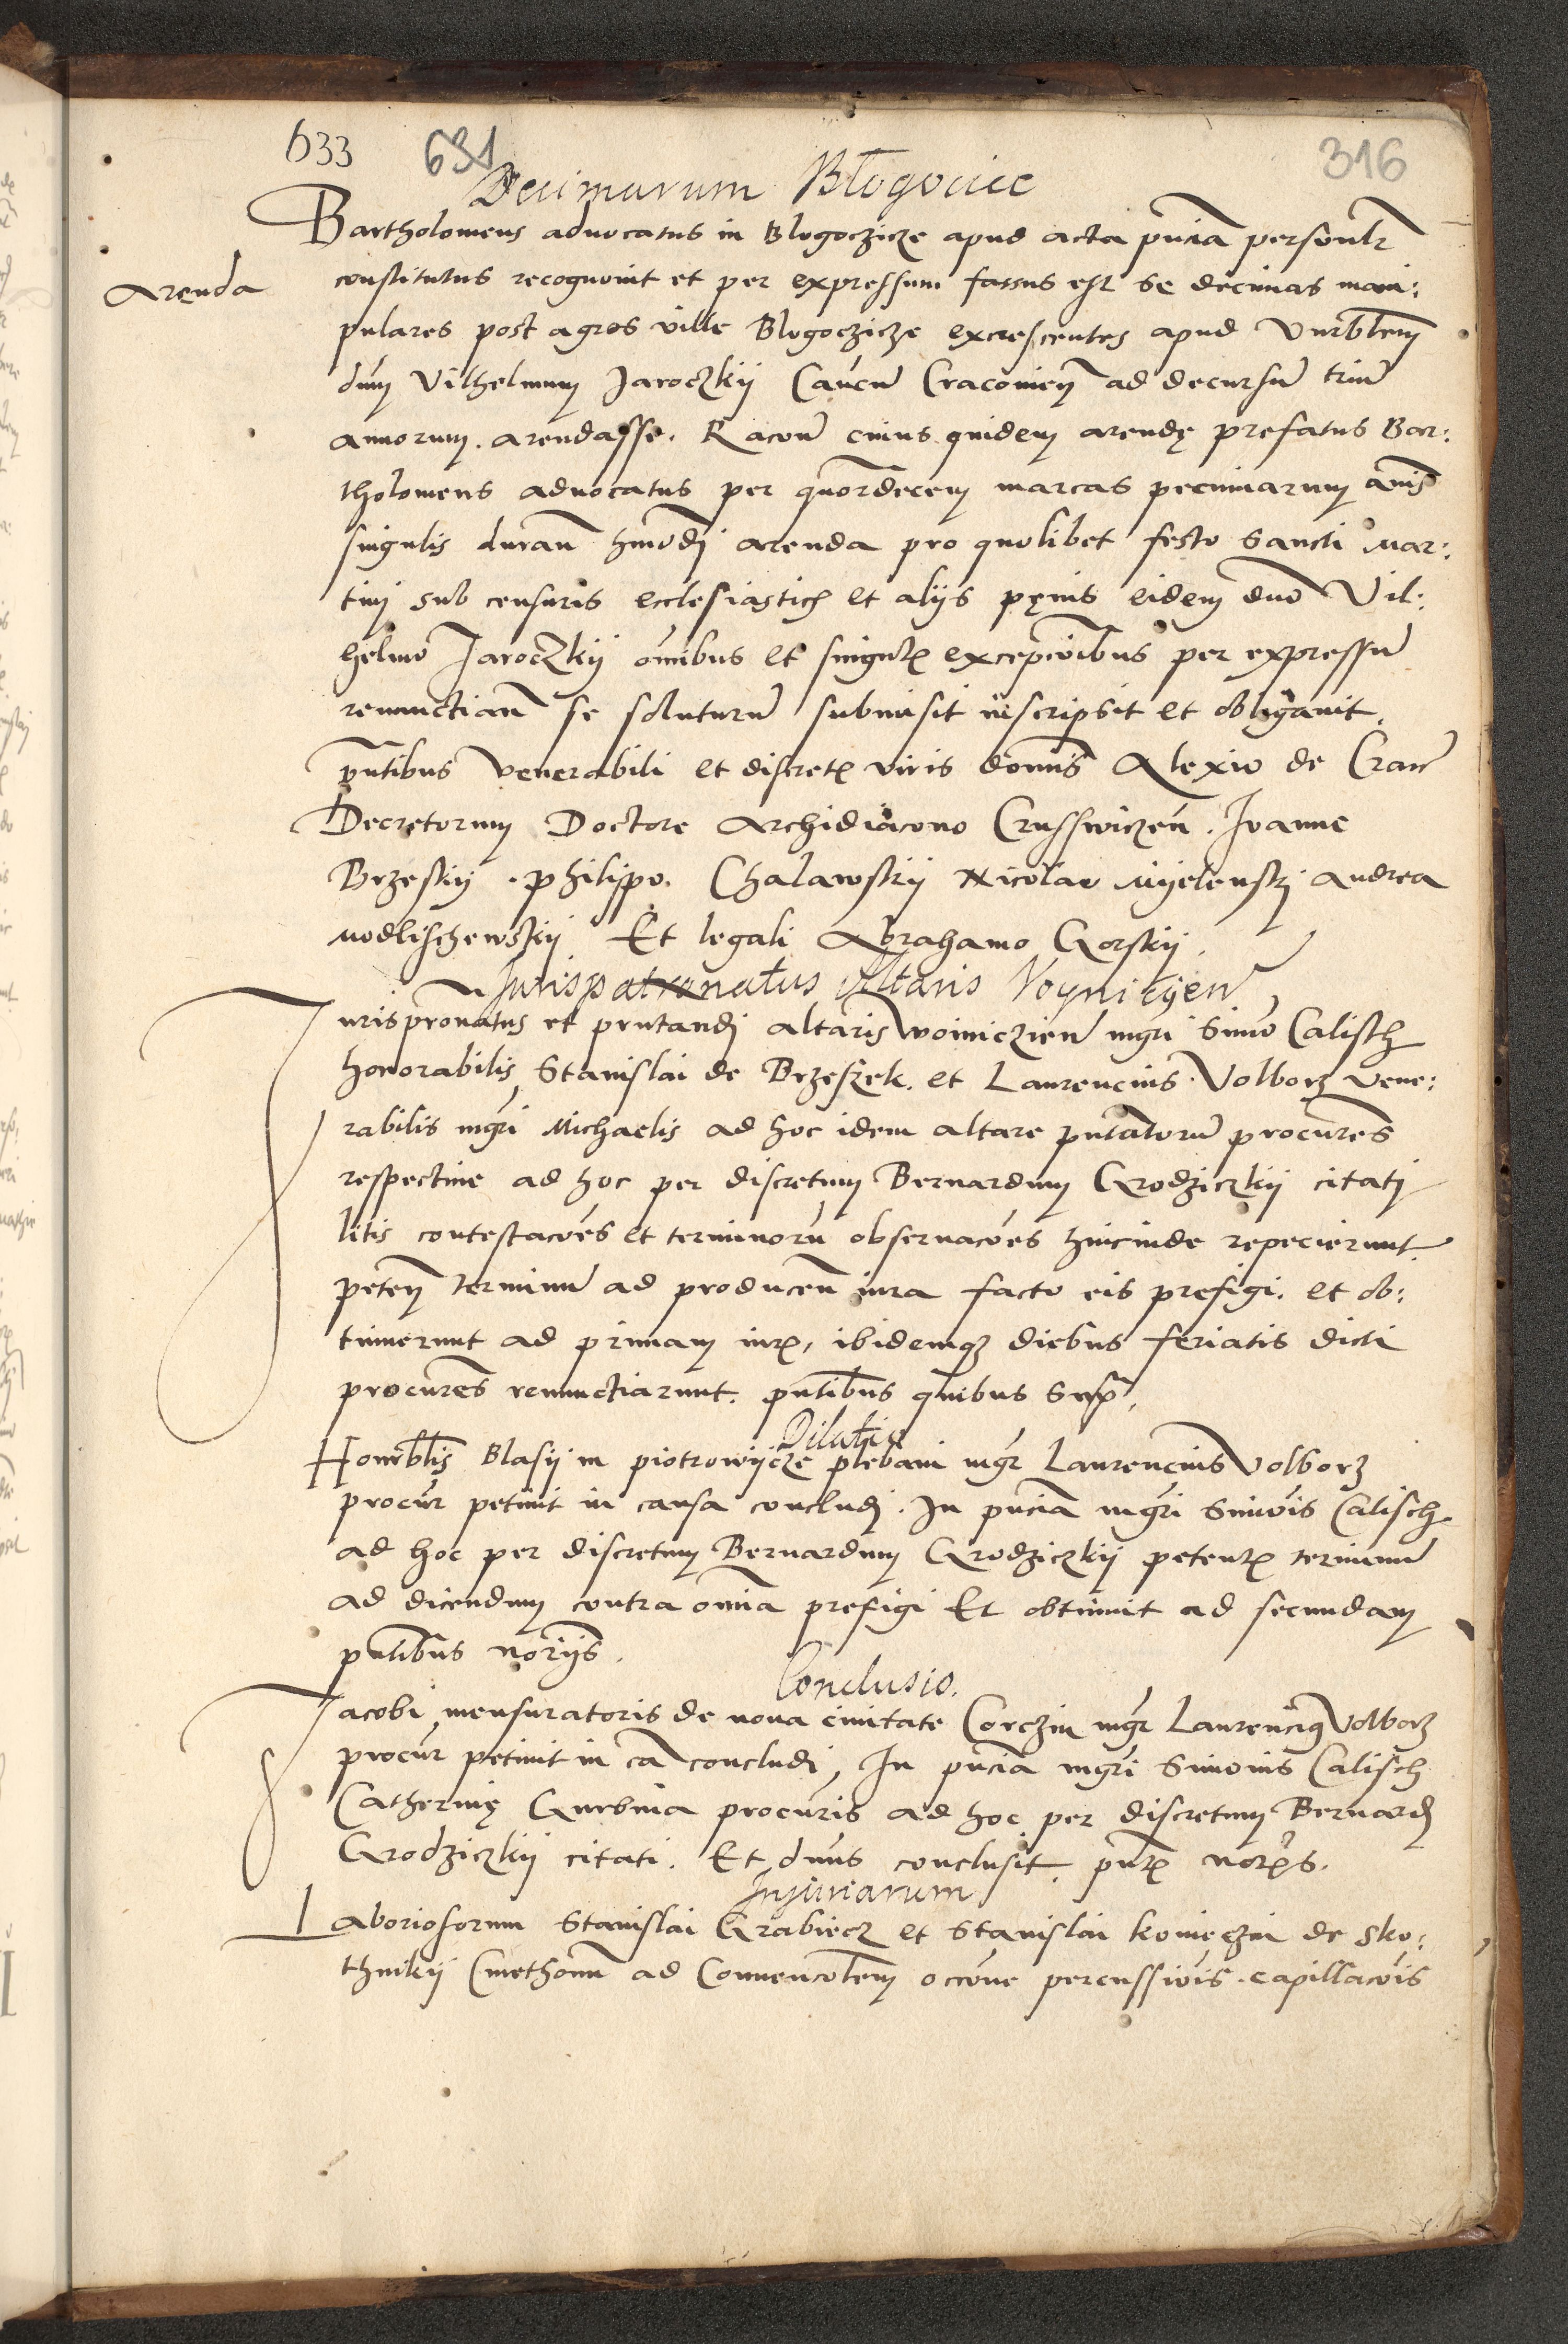 633 631 316
Decimarum Błogocice
Bartholomeus advocatus in Blogoczicze apud acta pñcia personlr
Arenda
constitutus recognovit et per expressum fassus est se decimas mani:
pulares post agros ville Blogoczicze excrescentes apud Vnrblem
dnm Vilhelmum Jaroczkij Canon Cracovien ad decursu triu
annorum arendasse. Racone cuius quidem arendę prefatus Bar:
tholomeus advocatus per quordecem marcas pecuniarum annis
singulis duran hmodi arenda pro quolibet festo Sancti Mar:
tini sub censuris ecclesiastic et alijs pęnis eidem dno Vil:
helmo Jaroczkij omibus et singul excepcionibus per expressu
renunctian se soluturu submisit inscripsit et obligavit
pntibus venerabili et discret viris domis Alexio de Crac
Decretorum Doctore Archidiacono Crusswiczen. Joanne
Brzeskij. philippo. Chalawskij Nicolao Myelenskj Andrea
Modlischewskij Et legali Abrahamo Gorskij.
Jurispatronatus Altaris Voyniczen
Jurispronatus et pntandi altaris woiniczien mgri Simo Calisch
honorabilis Stanislai de Brzeszek. et Laurencius Volborz vene:
rabilis mgri Michaelis ad hoc idem altare pntatoru procures
respective ad hoc per discretum Bernardum Grodziczkij citati
litis contestacoes et terminoru observacoes hincinde repecierunt
peten terminu ad producen iura facto eis prefigi. et ob:
tinuerunt ad primam iur, ibidemq diebus feriatis dicti
procures renunctiarunt. pntibus quibus Sup,
Dilatio
Honrblis Blasij in piotrowijcze plebani mgr Laurencius Volborz
procur petivit in causa concludi. In pncia mgri Simois Calisch
ad hoc per discretum Bernardum Grodziczkij petent terminu
ad dicendum contra omia prefigi Et obtinuit ad secundam
pntibus norijs.
Conclusio.
Jacobi mensuratoris de nova civitate Corczin mgr Laurencig Volborz
procur petivit in ca concludi, In pncia mgri Simonis Calisch
Catherinę Gurbina procuris ad hoc per discretum Bernard
Grodziczkij citati. Et dnus conclusit. pnt noris.
Injuriarum
Laboriosorum Stanislai Grabiecz et Stanislai konięczni de Sko:
thnikij Cmethonu ad Convencolem occone percussiois. capillacois